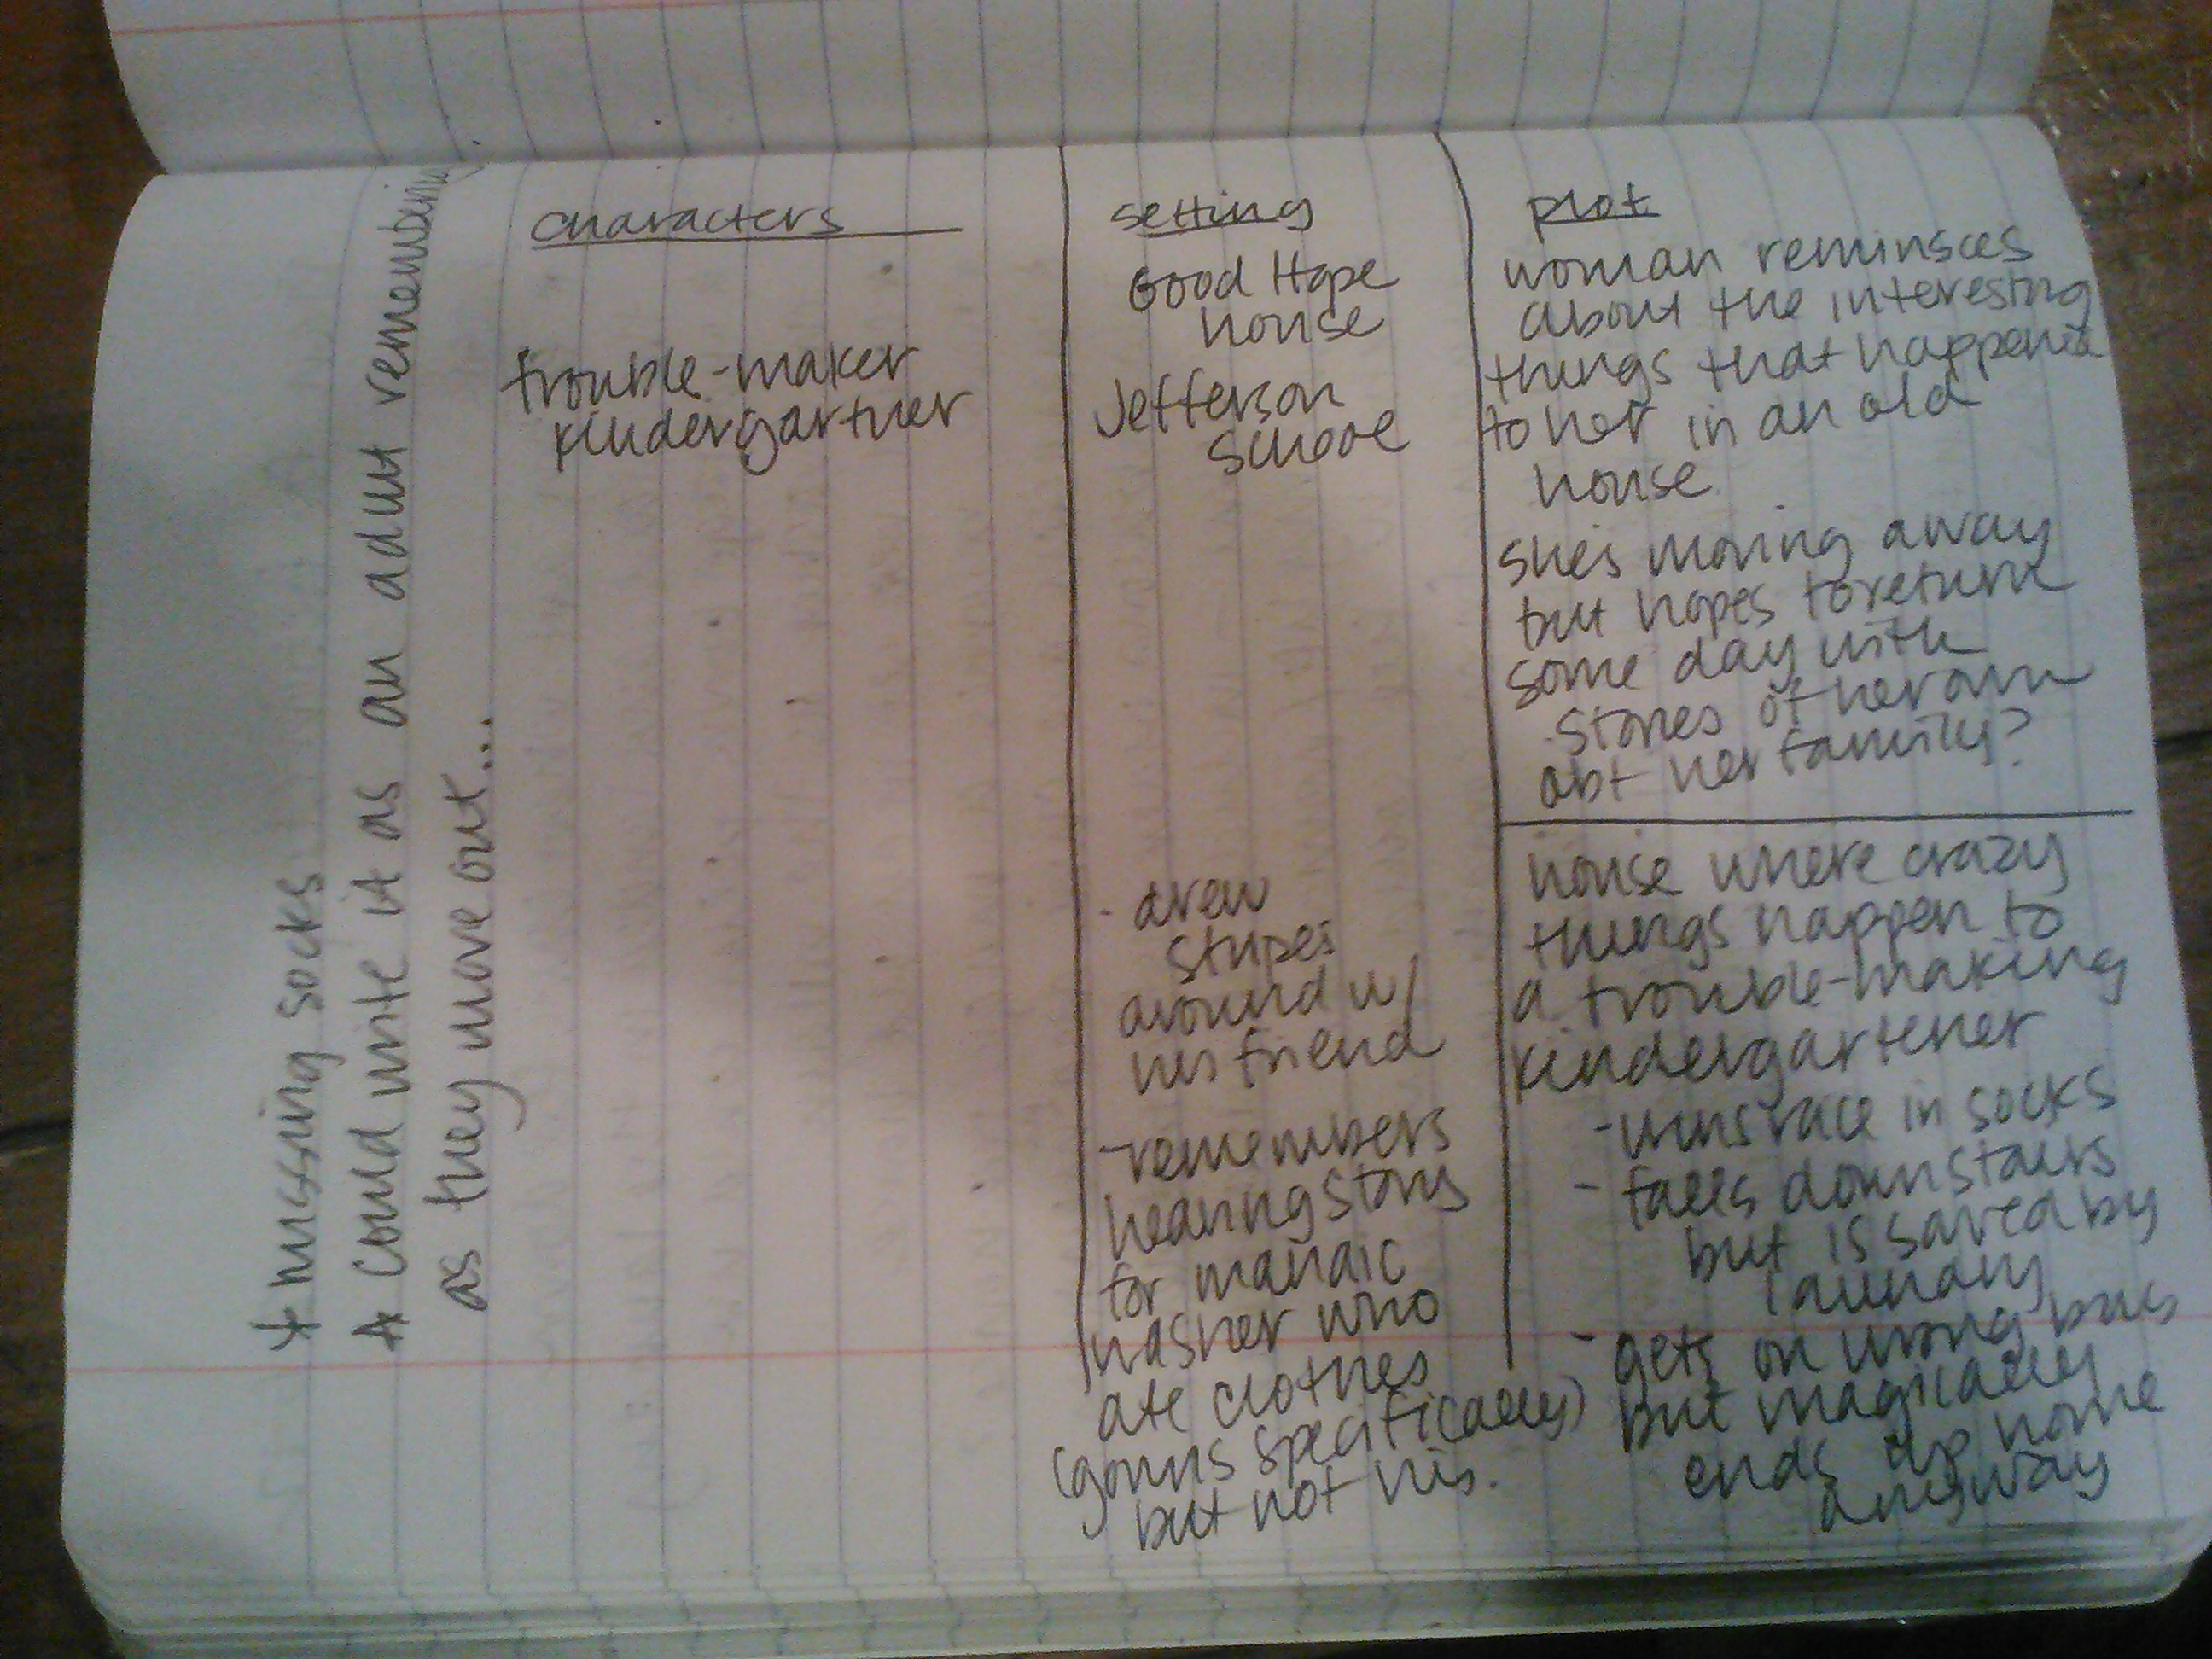 characters
trouble-maker
kindergartner
setting
Good Hope
house
Jefferson
School
- drew
stripes
around w/
his friend
- remembers
hearing story
for manaic
washer who
ate clothes
specifically)
but not his.
plot
woman reminsces
about the interesting
things that happened
to her in an old
house
She's moving away
but hopes to return
some day with
stories of her own
abt her family?
house where crazy
things happen to
a trouble-making
kindergartener
- wins race in socks
- falls downstairs
but is saved by
laundry
- gets on wrong bus
but magically
ends up home
anyway
* missing socks
* could write it as an adult remembering
as they move out...